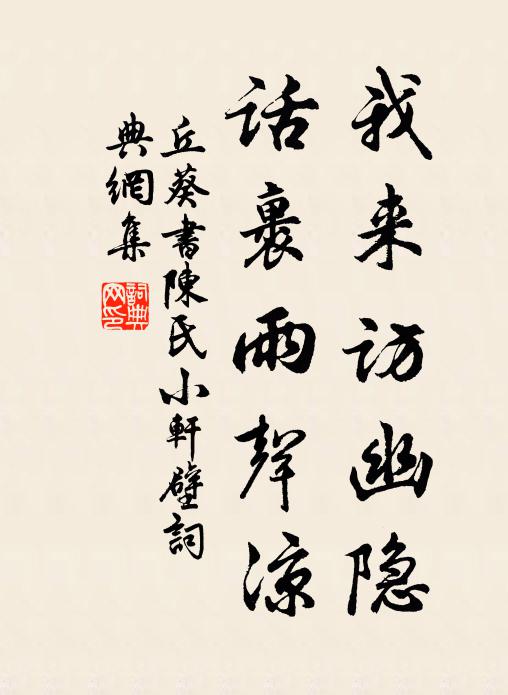 我来访幽隐
话裹雨聲凉
丘葵書陳氏小軒壁詞
典網集
詞典网印